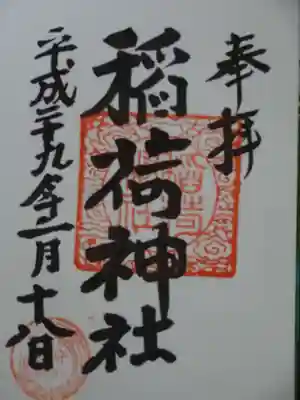 奉拝
稲荷神社
平成二十九年十一月十八日